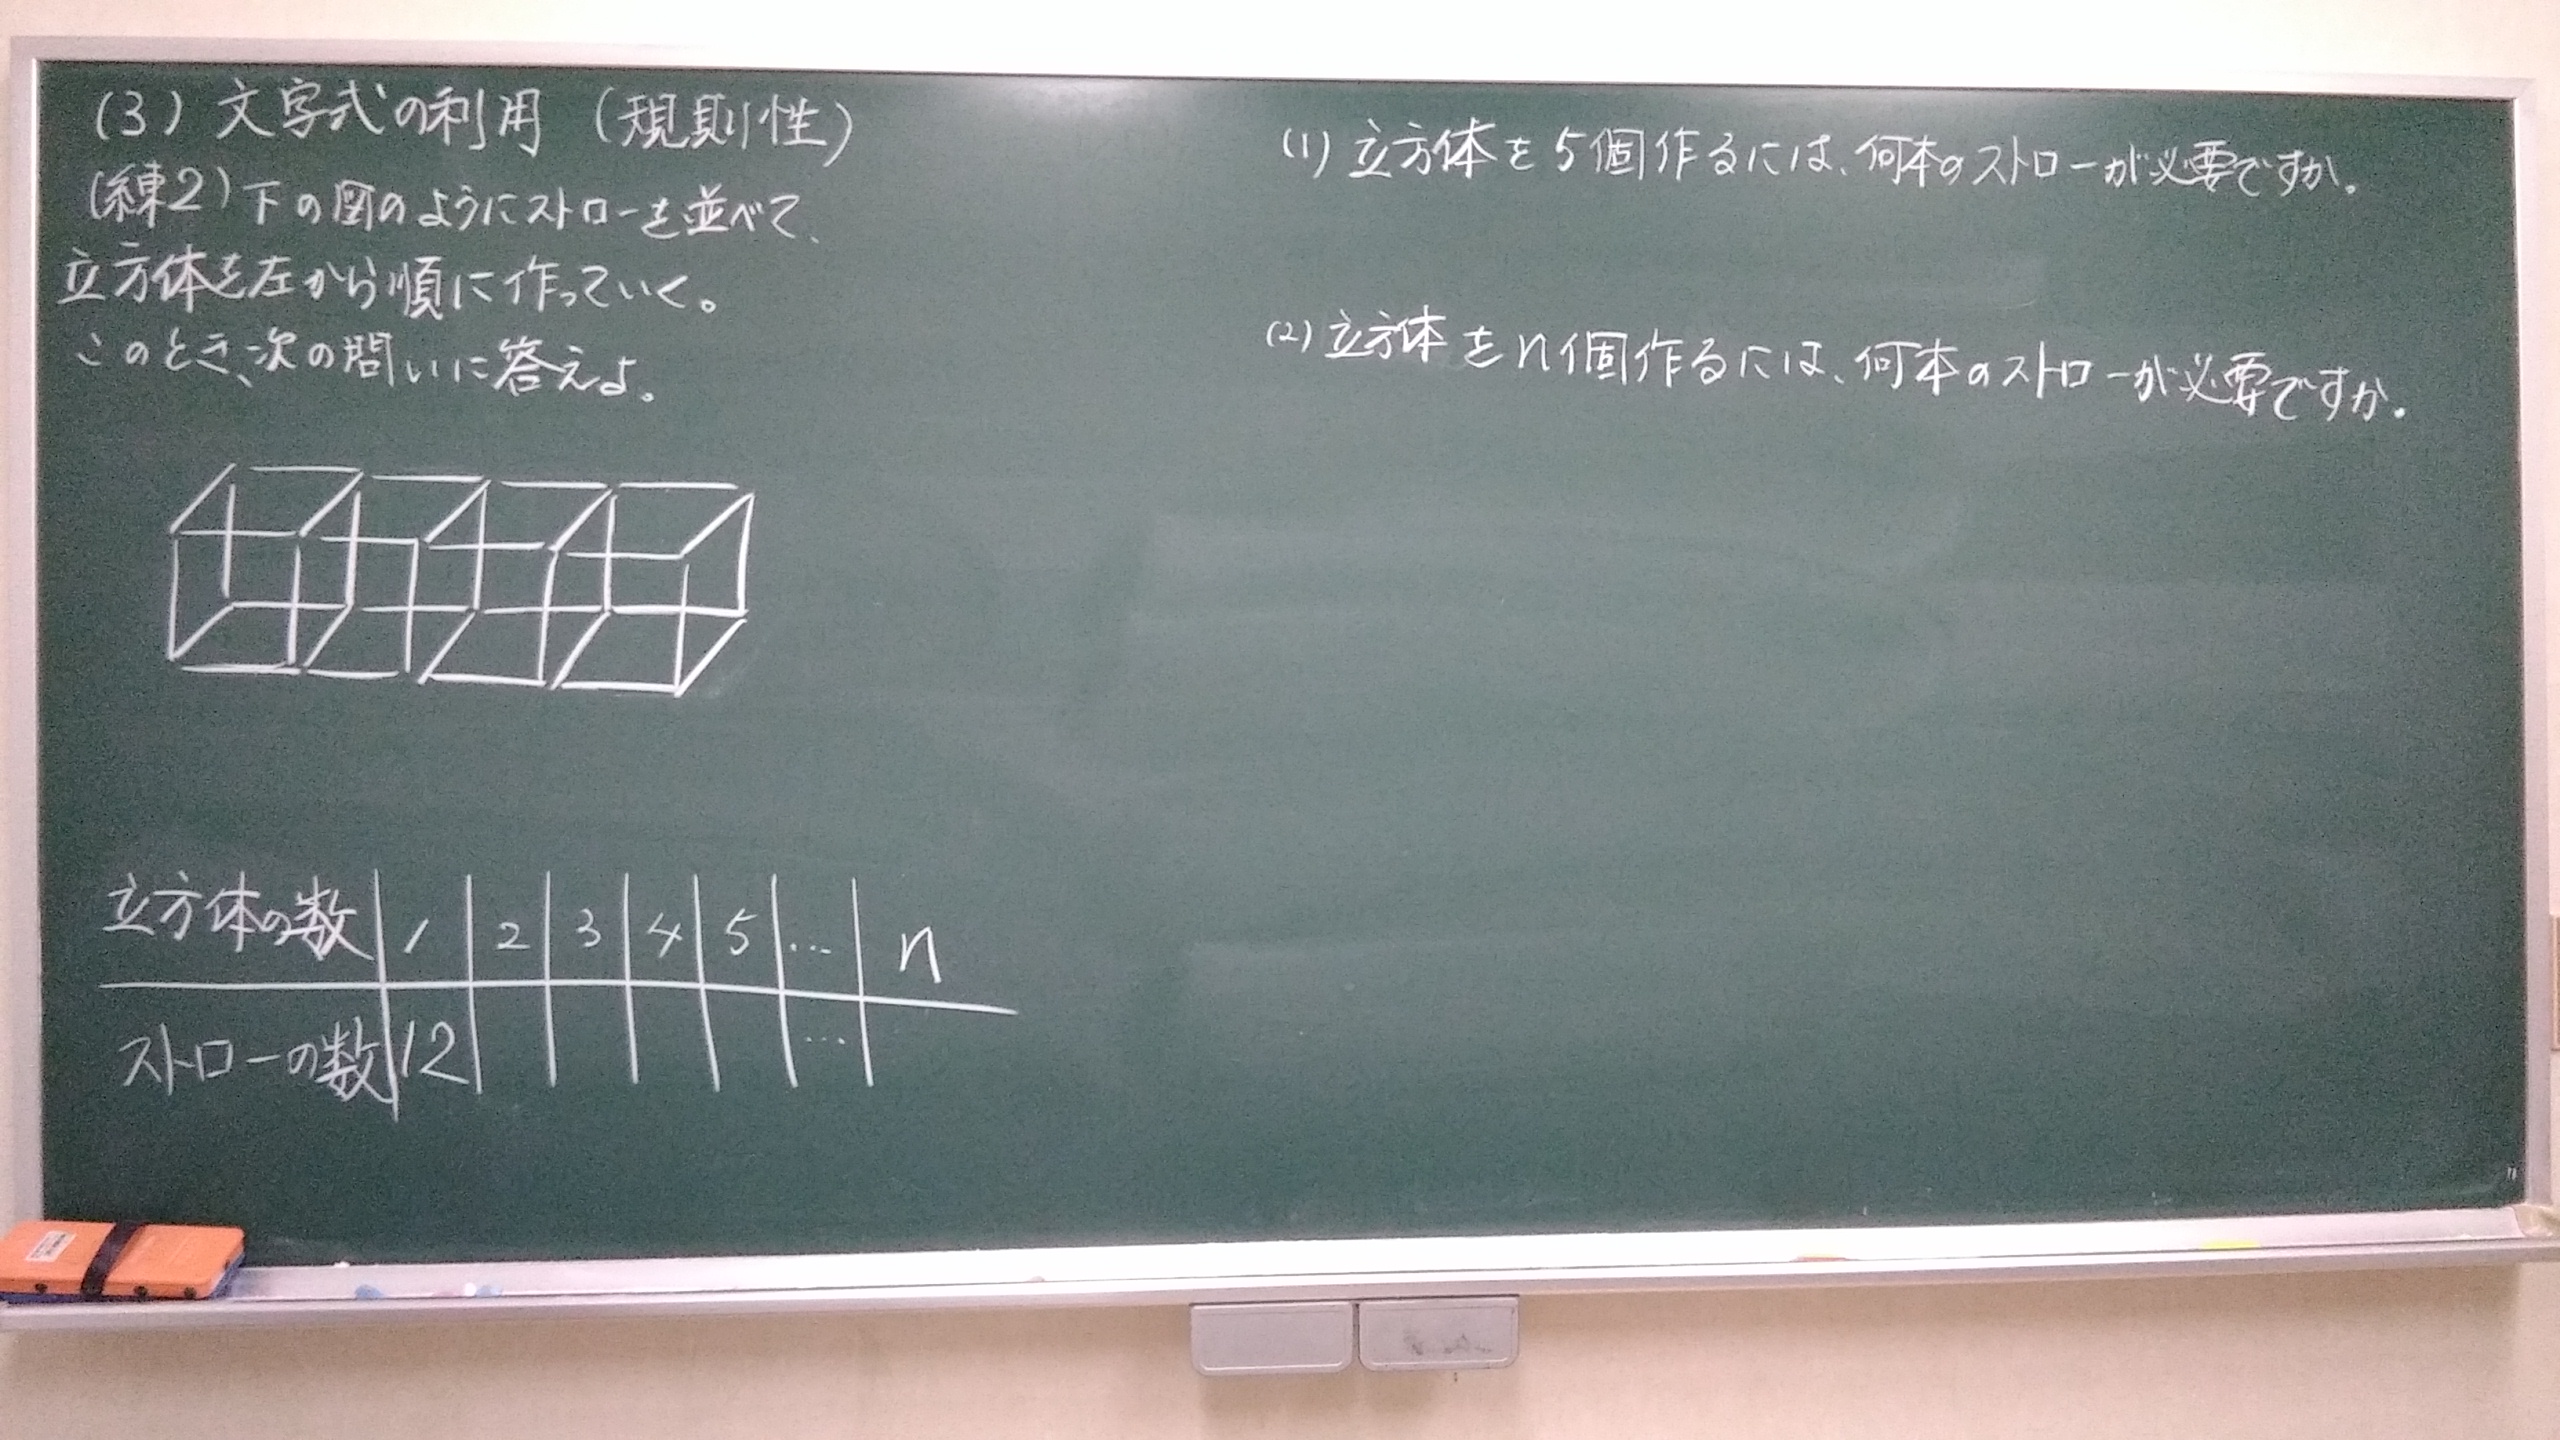 (3) 文字式の利用 (規則性)
(練2) 下の図のようにストローを並べて、
立方体を左から順に作っていく。
このとき、次の問いに答えよ。
立方体の数 1 2 3 4 5 … n
ストローの数 12 …
(1) 立方体を5個作るには、何本のストローが必要ですか。
(2) 立方体をn個作るには、何本のストローが必要ですか。